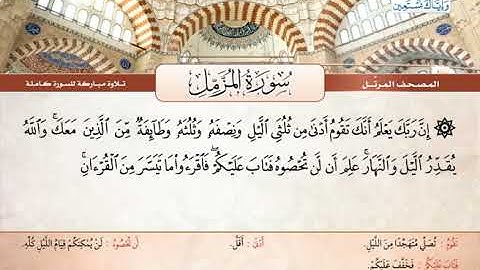 وإياك نستعين
المصحف المرتل
سورة المزمل
تلاوة مباركة للسورة كاملة
۞ إِنَّ رَبَّكَ يَعْلَمُ أَنَّكَ تَقُومُ أَدْنَىٰ مِن ثُلُثَيِ الَّيْلِ وَنِصْفَهُۥ وَثُلُثَهُۥ وَطَآئِفَةٌ مِّنَ الَّذِينَ مَعَكَ ۚ وَاللَّهُ
يُقَدِّرُ الَّيْلَ وَالنَّهَارَ ۚ عَلِمَ أَن لَّن تُحْصُوهُ فَتَابَ عَلَيْكُمْ ۖ فَاقْرَءُوا۟ مَا تَيَسَّرَ مِنَ الْقُرْءَانِ ۚ
تَقُومُ : تُصَلِّي مُتَهَجِّدًا مِنَ اللَّيْلِ. أَدْنَىٰ : أَقَلَّ. لَن تُحْصُوهُ : لَنْ يُمْكِنَكُمْ قِيَامُ اللَّيْلِ كُلِّهِ.
فَتَابَ عَلَيْكُمْ : فَخَفَّفَ عَلَيْكُمْ.